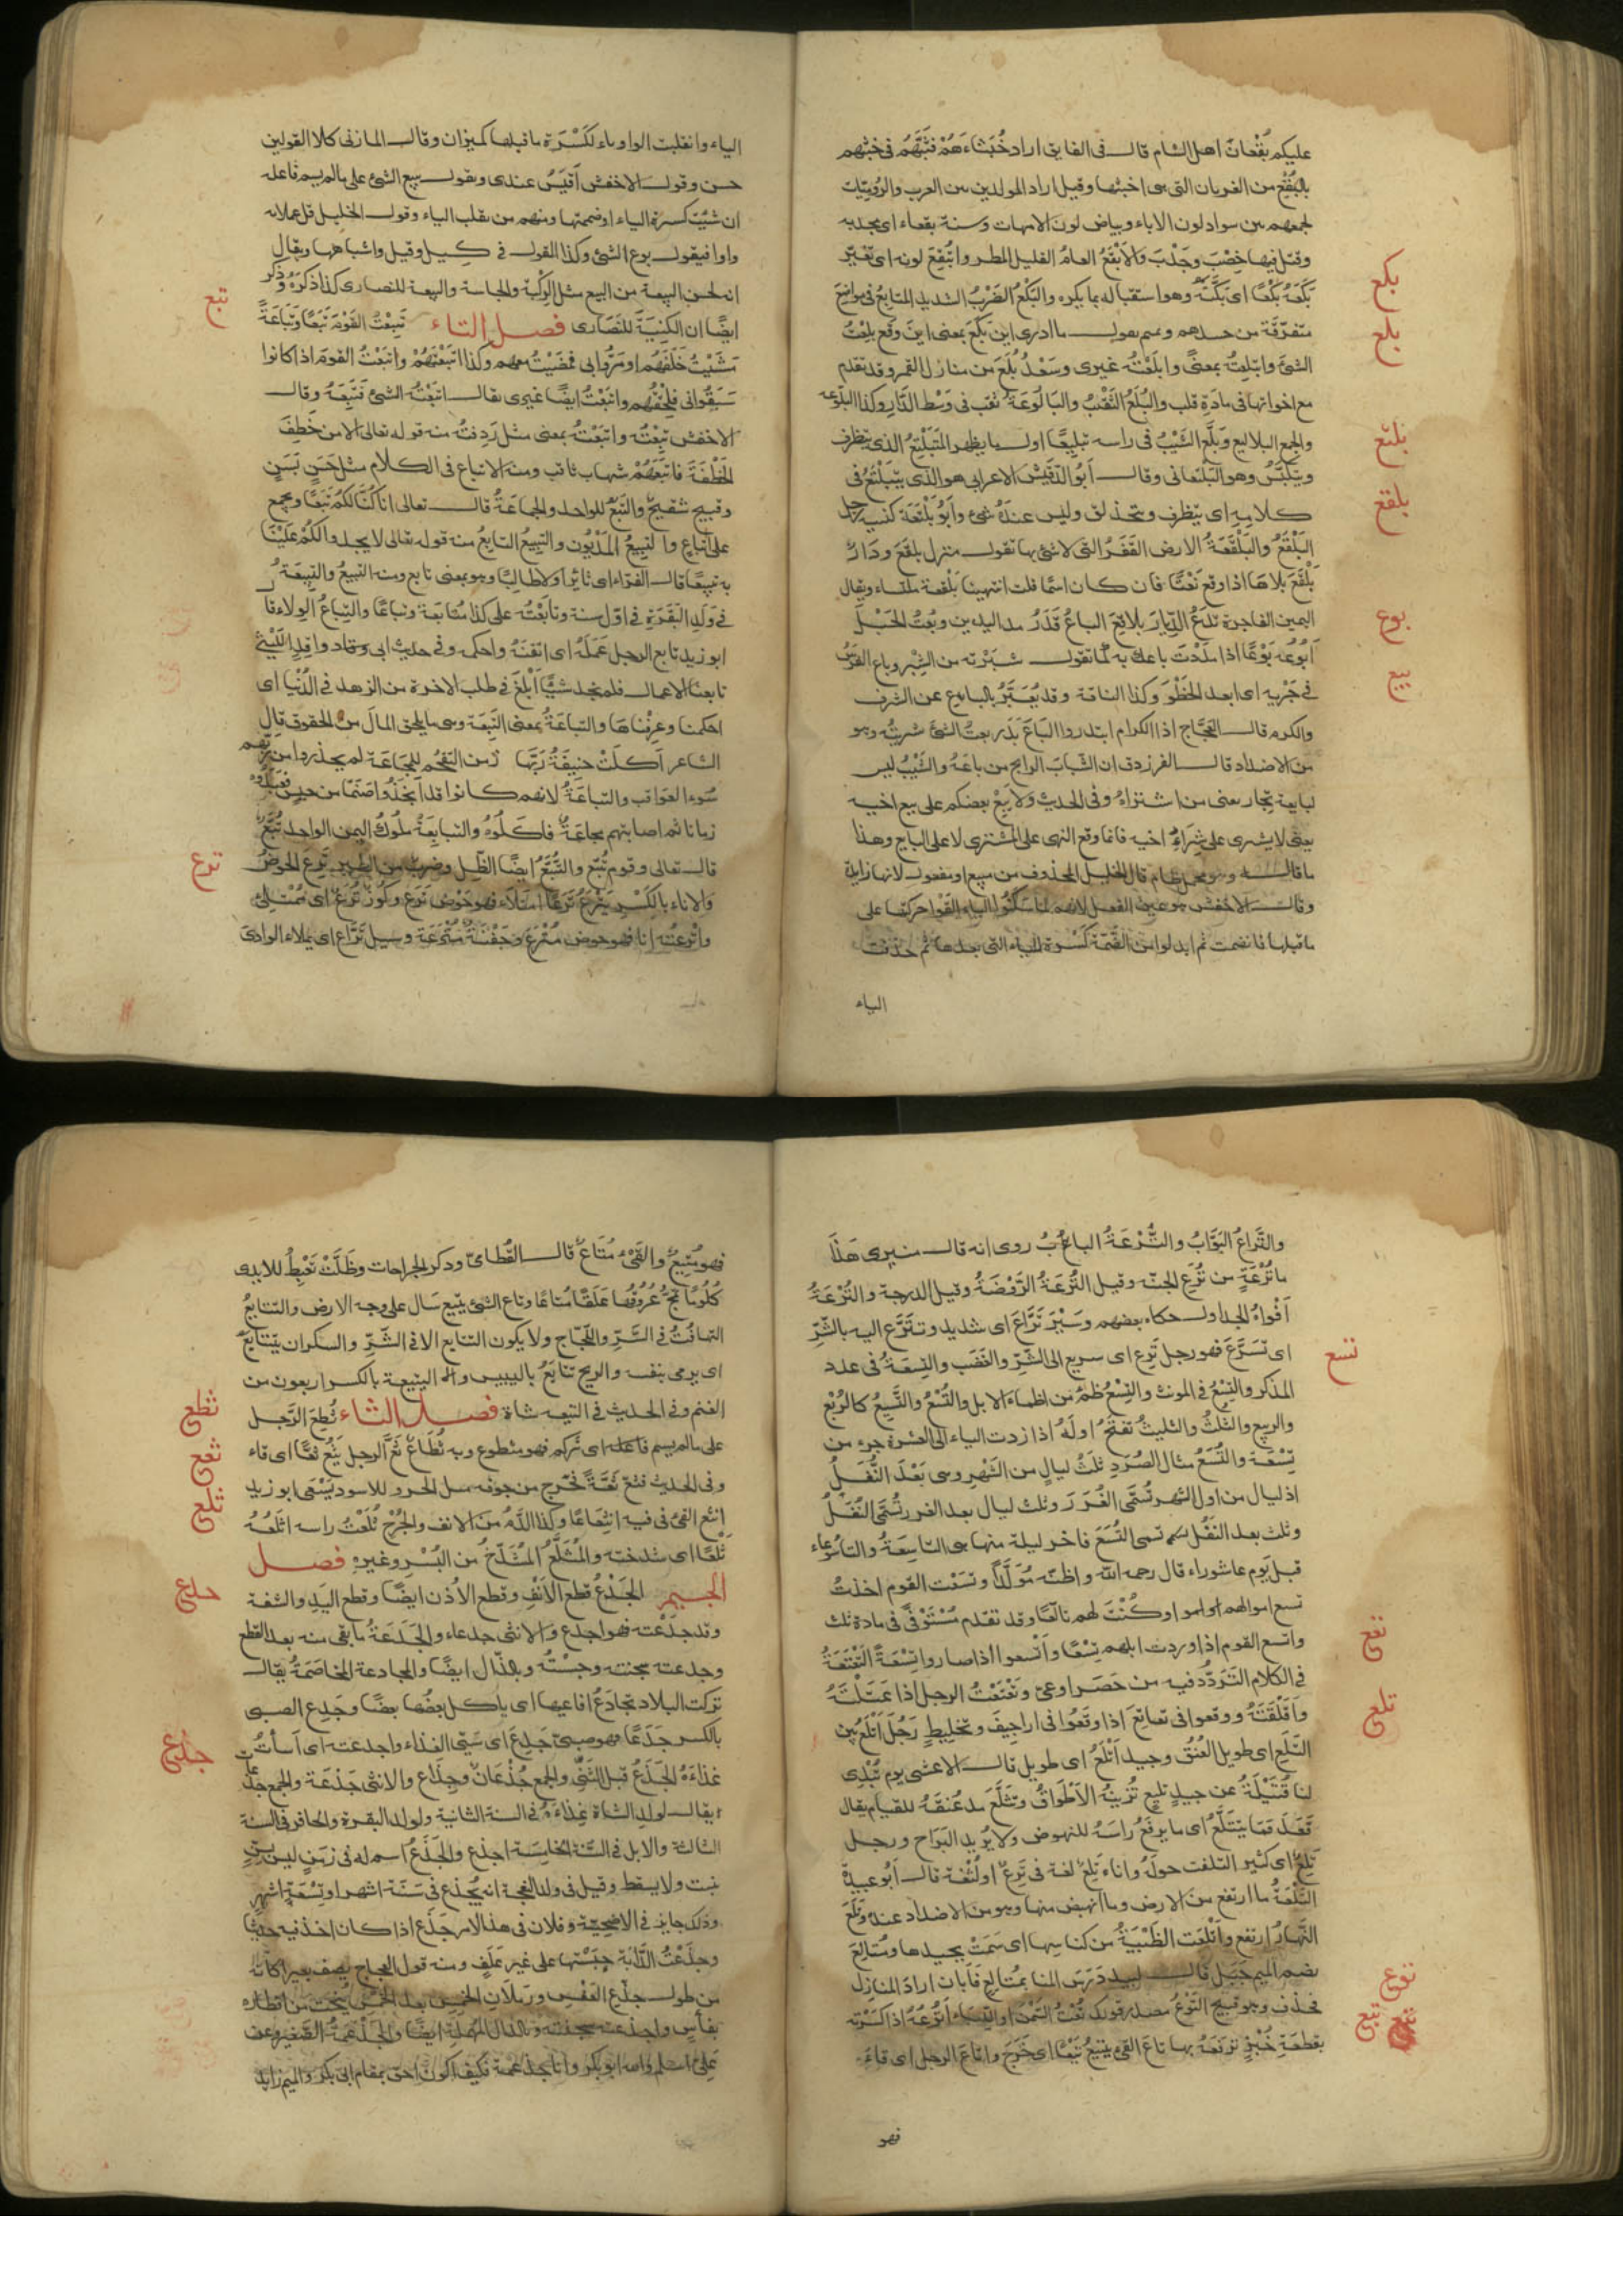 عليكم بُقْعانُ اهل الشام قالـ في الفايق اراد خُبَثاءَهُمْ فشَبَّهَهُم في خبثهم
بالبُقْعِ من الغربان التي هي اخبثها وقيل اراد المولدين بين العرب والروميّات
لجمعهم بين سواد لون الاباء وبياض لون الامهات وسنة بقعاء اي مجدبه
وقيل فيها خِصْبٌ وجَدْبٌ والاَبْقَعُ العامُ القليل المطر وابْتُقِعَ لونه اي تغيّر
بَكَعَهُ بَكْعًا اي بَكَّتَهُ وهو استقباله بما يكره والبَكْعُ الضَرْبُ الشديد المتابِعُ في مواضِعَ
متفرّقة من جسدهم وتميم تقولـ ما ادرى اين بَكَعَ بمعنى اين وقع بلِعْتُ
الشئَ وابْتلعتُ بمعنىً وابلَعْتُه غيرى وسَعْدُ بُلَعَ من منازل القمر وقد تقدّم
مع اخواتها في مادَّةِ قلب والبُلَعُ الثَقْبُ والبَالُوعَةُ ثقب في وَسْط الدَّارِ وكذا البلّوعة
والجمع البلاليع وَبَلَّعَ الشَيْبُ في راسه تبليعًا اولـ ما يظهر المُتَبَلْتِعُ الذى يتظرف
ويتكيَّسُ وهو البَلْتَعاني وقالـ أَبُو الدُقَيْشِ الاعرابي هو الذى يتبَلْتَعُ في
كلامِهِ اى يتظرف ويتحذلق وليس عندهُ شئ وابُو بَلْتَعَةَ كنية رجل
البَلْقَعُ والبَلْقَعَةُ الارض القَفَرُ التي لا شئ بها تقولـ منزل بلقَع ودَارٌ
بَلْقَعٌ بلا هَا اذا وقع نَعْتًا فان كان اسمًا قلت انتهينا الى بَلْقعة ملساء ويقال
اليمين الفاجرة تدَعُ الدِّيارَ بلاقِعَ الباعُ قَدْرُ مد اليدين وبُعْتُ الحَبْلَ
اَبُوعُه بَوْعًا اذا مدَدْتَ باعك به كما تقولـ شبَرْته من الشِبْر وباع الفرَسُ
في جَرْيِه اى ابعد الخَطْوَ وكذا الناقة وقد يُعَبَّرُ بالباع عن الشرف
والكرم قالـ العجَّاج اذا الكرام ابتدروا الباعَ بَدَر بعتُ الشئَ شريتُه وهو
من الاضداد قالـ الفرزدق ان الشَبابَ لرابح من باعَهُ والشَيْبُ ليس
لبايعيه تِجار يعنى من اشتراهُ وفي الحديث ولا يَبِعْ بعضكم على بيع اخيه
يعنى لا يشترى على شِراءِ اخيه فانما وقع النهى على المشترى لا على البايع وهذا
وقالـ الاخفش هو عين الفعل لانهم لما سكَّنُوا الياء القوا حركتها على
ما قبلها فانضمت ثم ابدلوا من الضَّمّة كَسْرة للياء التي بعدها ثم حذفت
الياء
بكع
بلع
بلتع
بلقع
بوع
بيع
الياء وانقلبت الواو ياء لكَسْرَةِ ما قبلها كميزان وقالـ المازنى كلا القولين
حسن وقولـ الاخفش أقيَسُ عندى وتقولـ بيع الشئ على ما لم يسم فاعله
ان شئت كسرت الياء او ضممتها ومنهم من يقلب الياء
واوا فيقولـ بوع الشئ وكذا القولـ في كيل وقيل واشباهها ويقال
انه لحسن البيعة من البيع مثل الرِكْبة والجلسة والبيعة للنصارى كذا ذكرَهُ وَذُكر
ايضًا ان الكنِيسَةَ للنَصَارى فصل التاء تَبِعْتُ القَوْمَ تَبَعًا وتَبَاعَةً
مَشَيْتُ خَلْفَهُم او مَرُّوا بى فمَضَيْتُ معهم وكذا اتّبَعْتُهُمْ واتبَعْتُ القومَ اذا كانوا
سَبَقُوني فلحِقْتُهم واتبَعْتُ ايضًا غيرى يقالـ اتبَعْتُه الشئَ فَتَبِعَهُ وقالـ
الاخفش تَبِعْتُه واتبَعْتُه بمعنى مثل رَدِفْتُه منه قوله تعالى الا من خَطِفَ
الخَطْفَةَ فاتبَعَهُ شهاب ثاقب ومنه الاتباع في الكلام مثل حَسَنٍ بَسَنٍ
وقبيح شقيح والتَبَعُ للواحد والجماعَةُ قالـ تعالى انا كُنَّا لكُمْ تَبَعًا ويجمع
على اتباعٍ والتَبِيعُ المَدْيُون والتبيعُ التابعُ منه قوله تعالى لا يجدوا لكُمْ عَلَيْنَا
به تبيعًا قالـ الفرّاء اى ثائِرًا ولا طالِبًا وهو بمعنى تابع ومنه التبيعُ والتبيعَةُ
في ولَدِ البَقَرَةِ في اوّل سنة وتابَعْتُه على كذا مُتابعة وتباعًا والتِباعُ الوِلاء قا
ابو زيد تابع الرجل عَمَلَهُ اى اتقنَهُ واحكمه وفي حديث ابى وقاد واقِدِ اللَيْثِى
تابعنا الاعمال فلم نجد شَيًّا اَبْلَغَ في طلب الاخرة من الزهد في الدُنْيا اى
احكمنا وعرفناها والتباعَةُ بمعنى التَبِعَة وهى ما يلحق المالَ من الحقوق قال
الشاعر اَكلَتْ حنِيفَةُ رَبّها زمن التقحُّم للمجَاعَة لم يحذروا من ربّهم
سُوءَ العَواقب والتباعَةُ لانهم كانوا قد اتّخَذُوا صَنَمًا من حيس فعَبَدُوهُ
زمانا ثم اصابتهم مجاعَةٌ فاكَلُوهُ والتبابِعَةُ مُلوكُ اليمن الواحد تُبَّعٌ
قالـ تعالى وقوم تُبّع والتُبَّعُ ايضًا الظِلّ وضرب من الطير تَرِعَ الحوضُ
وَالاناء بالكَسْرِ يَتْرَعُ تَرَعًا امتلأ فهو حَوْضٌ تَرَعٌ وكُوزٌ تَرَعٌ اى مُمْتَلِئ
واتْرَعْتُه انا فهو حوض مُتْرَع وجَفْنَةٌ مُتْرَعَة وسيل تَرَّاع اى يملاء الوادى
تبع
ترع
والتَّراعُ البَوَّابُ والتُّرْعَةُ البابُ روى انه قالـ منبرى هَذَا
ما تُرْعَةٍ من تُرَعِ الجنّة وقيل التُّرعَةُ الرَّوْضَةُ وقيل الدرجة والتُرْعَةُ
اَفْواهُ الجداولـ حكاه بعضهم وَسَيْرٌ تَرَّاع اى شديد وتتَرَّع اليه بالشَّرِّ
اى تسَرَّعَ فهو رجل تَرِع اى سريع الى الشَّرِّ والغَضَب والتِسعَةُ في عدد
المذكر والتِسْعُ في المونث والتِسْعُ ظمْءٌ من اظماءِ الابل والتُسْعُ والتَسِيعُ كالرُبْع
والربيع والثلثُ والثليثُ تفتَحُ اولَهُ اذا زدت الياء الى العشرة جزء من
تِسْعَة والتُسَعُ مثال الصُرَدِ ثلثُ ليالٍ من الشَهْرِ وهى بَعْدَ النُفَلِ
اذ ليال من اول الشهر تُسَمَّى الغُرَرَ وثلث ليال بعد الغرر تُسَمَّى النُفَلُ
وثلث بعد النُفَل تسمى التُسَعَ فاخر ليلة منها هى التاسِعَةُ والتاسُوعاء
قبل يَوم عاشوراء قال رحمه الله واظنّه مُوَلَّدًا وتسَعْت القوم اخذتُ
تسع اموالهم او كُنْتَ لهم تاسعًا وقد تقدم مُسْتَوْفىً في مادة ثلث
واتسع القوم اذا وردت ابلهم تِسْعًا وَاَتْسعوا اذا صاروا تِسْعَةً التَعْتَعَةُ
في الكلام التَرَدُّد فيه من حَصَر او عىّ وتعْتَعْتُ الرجل اذا عَتَلْتَهُ
وَاَقْلَقْتَهُ ووقعوا في تعاتِعَ اذا وقَعُوا في اراجِيفَ وتخليطٍ رَجُل اَتْلَعُ بَيّن
التَلَعِ اى طويل العُنُق وجيد اَتْلَعُ اى طويل قالـ الاعشى يوم تُبْدِى
لنا قُتَيْلَةُ عن جيدٍ تليعٍ تُزَيّنُه الاَطْوَاقُ وتتلَّعَ مد عُنقَهُ للقيام يقال
قَعَد فمَا يتتلَّعُ اى ما يرفَعُ راسَهُ للنهوض ولا يُريد البَرَاح ورجل
تَلِعٌ اى كثير التلفت حولَهُ واناء تَلِعٌ لغة في تَرِعٌ او لُثْغة قالـ أَبُو عبيدة
التَّلْعَةُ ما ارتفع من الارض وما انهبض منها وهو من الاضداد عندهُ وتلَعَ
النَهارُ ارتفع واَتْلَعَت الظَبْيَةُ من كناسِها اى سَمَتْ بجيدها ومُتالِعٌ
بضم الميم جَبَل قالـ لبيد دَرَسَ المنا بمُتالِعٍ فاَبَان اراد المنازل
فحذف وهو قبيح التَوْعُ مصدر قولك تُعْتُ السَمْنَ او اللِبَاءَ اَتُوعُهُ اذا كسَرْته
بقطعَةِ خُبْزٍ ترفَعُهُ بها تاعَ القَىءُ يتيعُ تَيْعًا اى خَرَجَ واتاعَ الرجل اى قاءَ
فهو
تسع
تعع
تلع
توع
تيع
فهو مُتِيعٌ والقَىْءُ مُتَاعٌ قالـ القُطامِىّ وذكر الجراحات وظَلَّتْ تَعْبِطُ الايدى
كُلُومًا تَمُجُّ عُرُوقُها عَلَقًا مُتاعًا وتاع الشئ يتيع سَال على وجه الارض والتتايُع
التهافُتُ في الشَرِّ واللَجَاج ولا يكون التتايع الا في الشَرِّ والسكران يتتايع
اى يرمى بنفسه والريح تتايَعُ باليبيس والتيعة بالكسر اربعون من
الغنم وفي الحديث في التيعة شاة فصل الثاء ثُطِعَ الرَّجل
على ما لم يسم فاعله اى زُكم فهو مثطوع وبه ثُطَاعٌ ثَعَّ الرجل يَثِعُّ ثَعًّا اى قاء
وفي الحديث فثعّ ثَعَّةً فخرج من جوفه مثل الجرو الاسود يَسْعَى ابو زيد
انثع القئ من فيه انثِعَاعًا وكذا الدَّمُ مِنَ الانف والجُرْح ثَلَعْتُ راسه اثلَعُهُ
ثَلْعًا اى شدخته والمُثَلَّعُ المُشَدَّخُ من البُسْرِ وغيرِهِ فصل
الجيم الجَدْعُ قطع الاَنْفِ وقطع الاُذن ايضًا وقطع اليَدِ والشفة
وقد جَدَعْته فهو اجدع والانثى جدعاء والجَدَعَةُ ما بقى منه بعد القطع
وجدعته سجنته وحبسْتُه وبالذَّال ايضًا والمجادعة المخاصَمَةُ يقالـ
تركت البلاد تجادَعُ افاعيها اى ياكل بعضُها بعضًا وجَدِع الصبى
بالكسر جَدَعًا فهو صبىّ جَدِع اى سَيّئ الغذاء واجدعته اى اَسأتُ
غذاءَهُ الجَذَعُ قبل الثَنِىّ والجمع جُذْعَانٌ وجِذَاع والانثى جَذَعَة والجمع جَذَعات
يقالـ لولد الشاة في السنة الثانية ولولد البقرة والحافر في السنة
الثالثة والابل في السَنة الخامِسَة اجذع والجَذَعُ اسم له في زمَنٍ ليس بِسِنٍّ
تنبت ولا يسقط وقيل في ولد النعجة انه يُجذع في سَتَّة اشهر او تِسْعَةِ اشهر
وذلك جايز في الاضحِيّة وفلان في هذا الامر جَذَع اذا كان اخذ فيه حديثًا
وجذَعْتُ الدَّابّةَ حبَسْتها على غير علَفٍ ومنه قول العجاج يصف بعيرا كانّه
من طولـ جَذْعِ العَفْسِ ورَمَلانِ الخِمْسِ بعد الخِمْسِ يُنْحَتُ من اقطاره
بفأسٍ واجذعته سجنته وبالدال المهملة ايضًا والجَذْعَمَةُ الصَّغير وعن
علىّ اسلم والله ابو بكر وانا جذعمة فكيف اكونُ احق بمقام ابى بكر والميم زايدة
ثطع
ثعع
ثلع
جدع
جذع